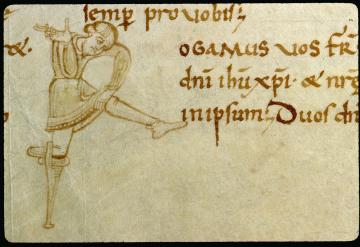 semp pro uobis;
& . OGAMUS UOS fr̄
dn̄i ihu xp̄i · & nr̄ȩ
in ipsum; Duos dn